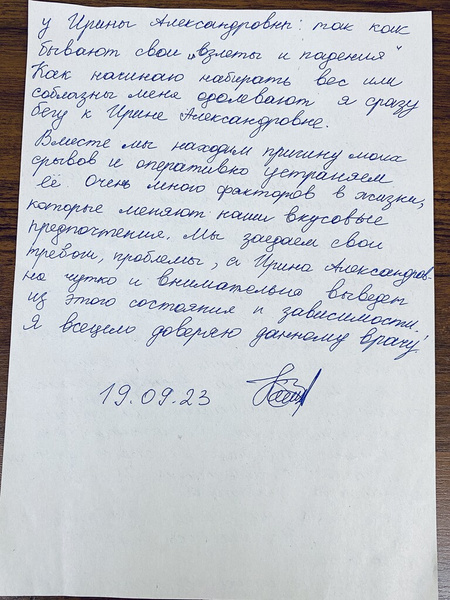 у Ирины Александровны: так как
бывают свои „взлеты и падения"
Как начинаю набирать вес или
соблазны меня одолевают я сразу
бегу к Ирине Александровне.
Вместе мы находим причину моих
срывов и оперативно устраняем
её. Очень много факторов в жизни,
которые меняют наши вкусовые
предпочтения. Мы заедаем свои
тревоги, проблемы, а Ирина Александров-
на чутко и внимательно выведет
из этого состояния и зависимости.
Я всецело доверяю данному врачу!
19.09.23